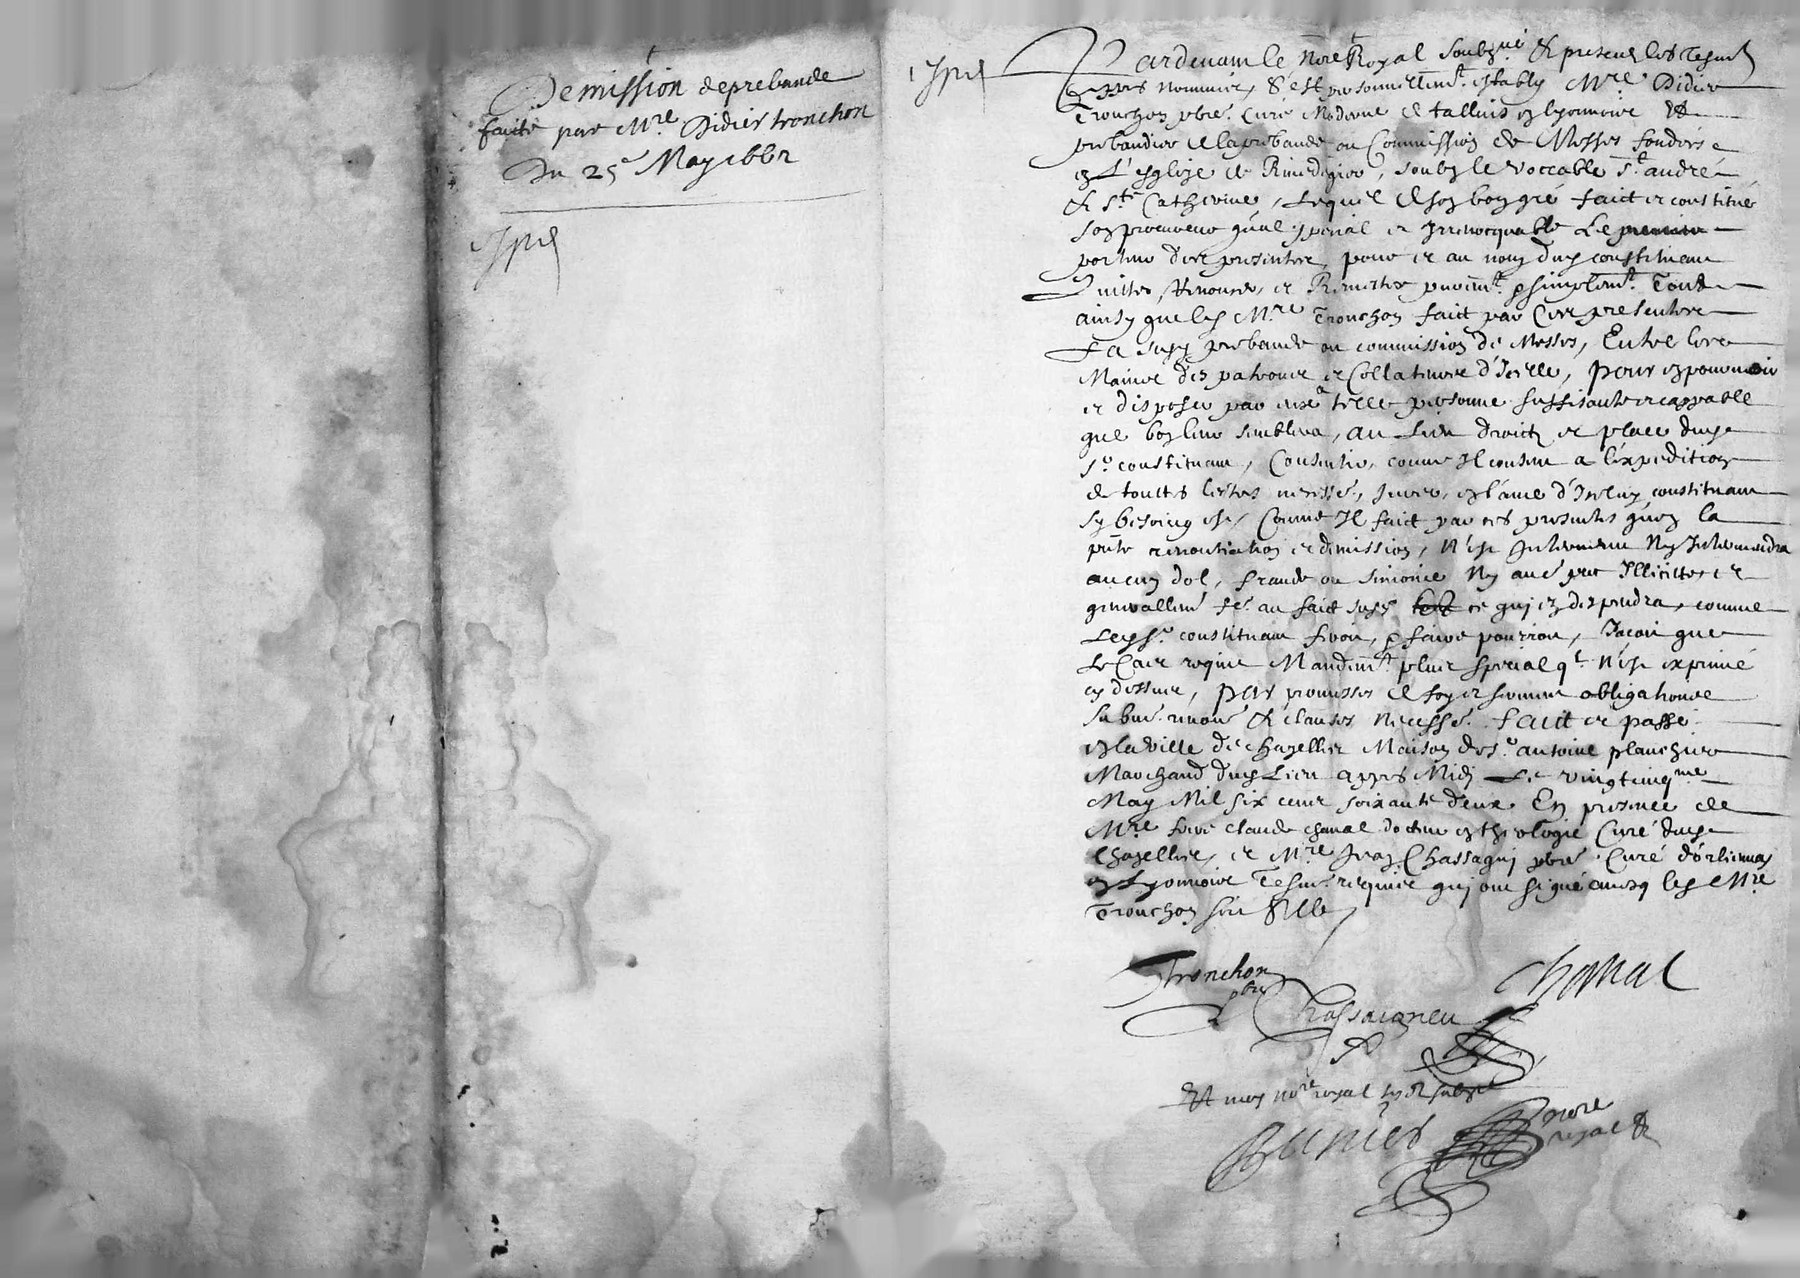 Demission de prebande
faicte par Mre Didier tronchon
Du 25e May 1662
Pardevant le Nore Royal soubzné & present les tesm
appres nommés, s'est personnellemt estably Mre Didier
Tronchon pbre curé moderne de talluis en lyonnoirs &
prebandier de la prebande ou Commission de Messes fondées
en L'esglize de Rivedegier, soubz le voccable st andré
& ste Catherine, Lequel de son bon gré faict et constitué
son procureur gnal spécial et Irrevocquable Le
porteur des presentes, pour et au nom dud constituant
Quitter, Renoncer, et Remettre puremt & simplemt Tout
ainsy que led Mre Tronchon faict par Ces presentes
La susd prebande ou commission de Messes, Entre les
Mains des patrons et Collateurs d'Icelle, pour en pourvoir
et disposer par eux a telle personne suffisante et cappable
que bon leur semblera, au Lieu droict et place dud
sr constituant, Consentir, comme Il consent a l'expedition
de touttes lettres necesse, jurer, en l'ame d'Iceluy constituant
sy besoing est, Comme Il faict par ces presentes qu'en la
pnte renontiation et demission, n'est Intervenu Ny Interviendra
aucun dol, fraude ou simonie Ny aue pact Illicitte, et
gnerallemt fe au faict susd ce qui en despendra, comme
Led sr constituant feroit, & faire pourroit, Jacoit que
Le Cas requit Mandemt plus special qt n'est exprimé
cy dessus, par promesses de foy et serment obligations
submi renon & clauses necesse. faict et passé
en la ville de chazelles Maison de sr antoine planchier
Marchand dud Lieu appres Midi Le vingtcinqme
May Mil six cent soixante deux En presence de
Mre claude chanal docteur en theologie Curé dud
Chazelles, et Mre Jean Chassagni pbre Curé d'orlienas
en Lyonnoirs Tesm requis qui ont signé avecq led Mre
Tronchon
Tronchon
pbre
Chanal
Chassaigneu
Et moy nore royal subzne
nore
royal